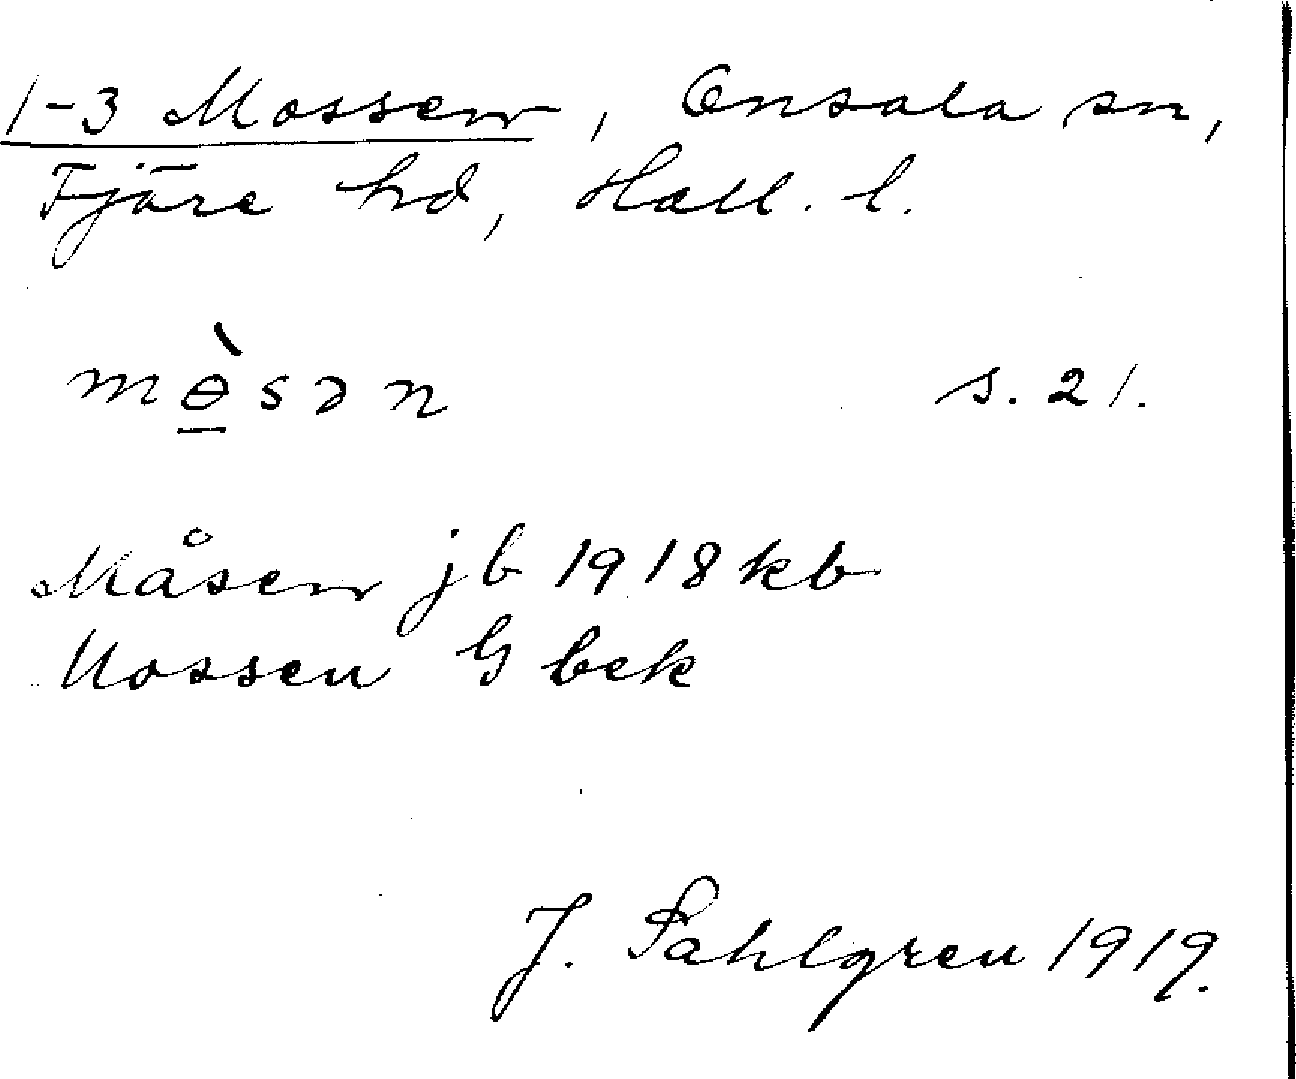 1-3 Mossen, Onsala sn,
Fjäre hd, Hall. l.
mɵ̲̀sən s. 21.
Måsen jb 1918 kb
Mossen G bek
J. Sahlgren 1919.